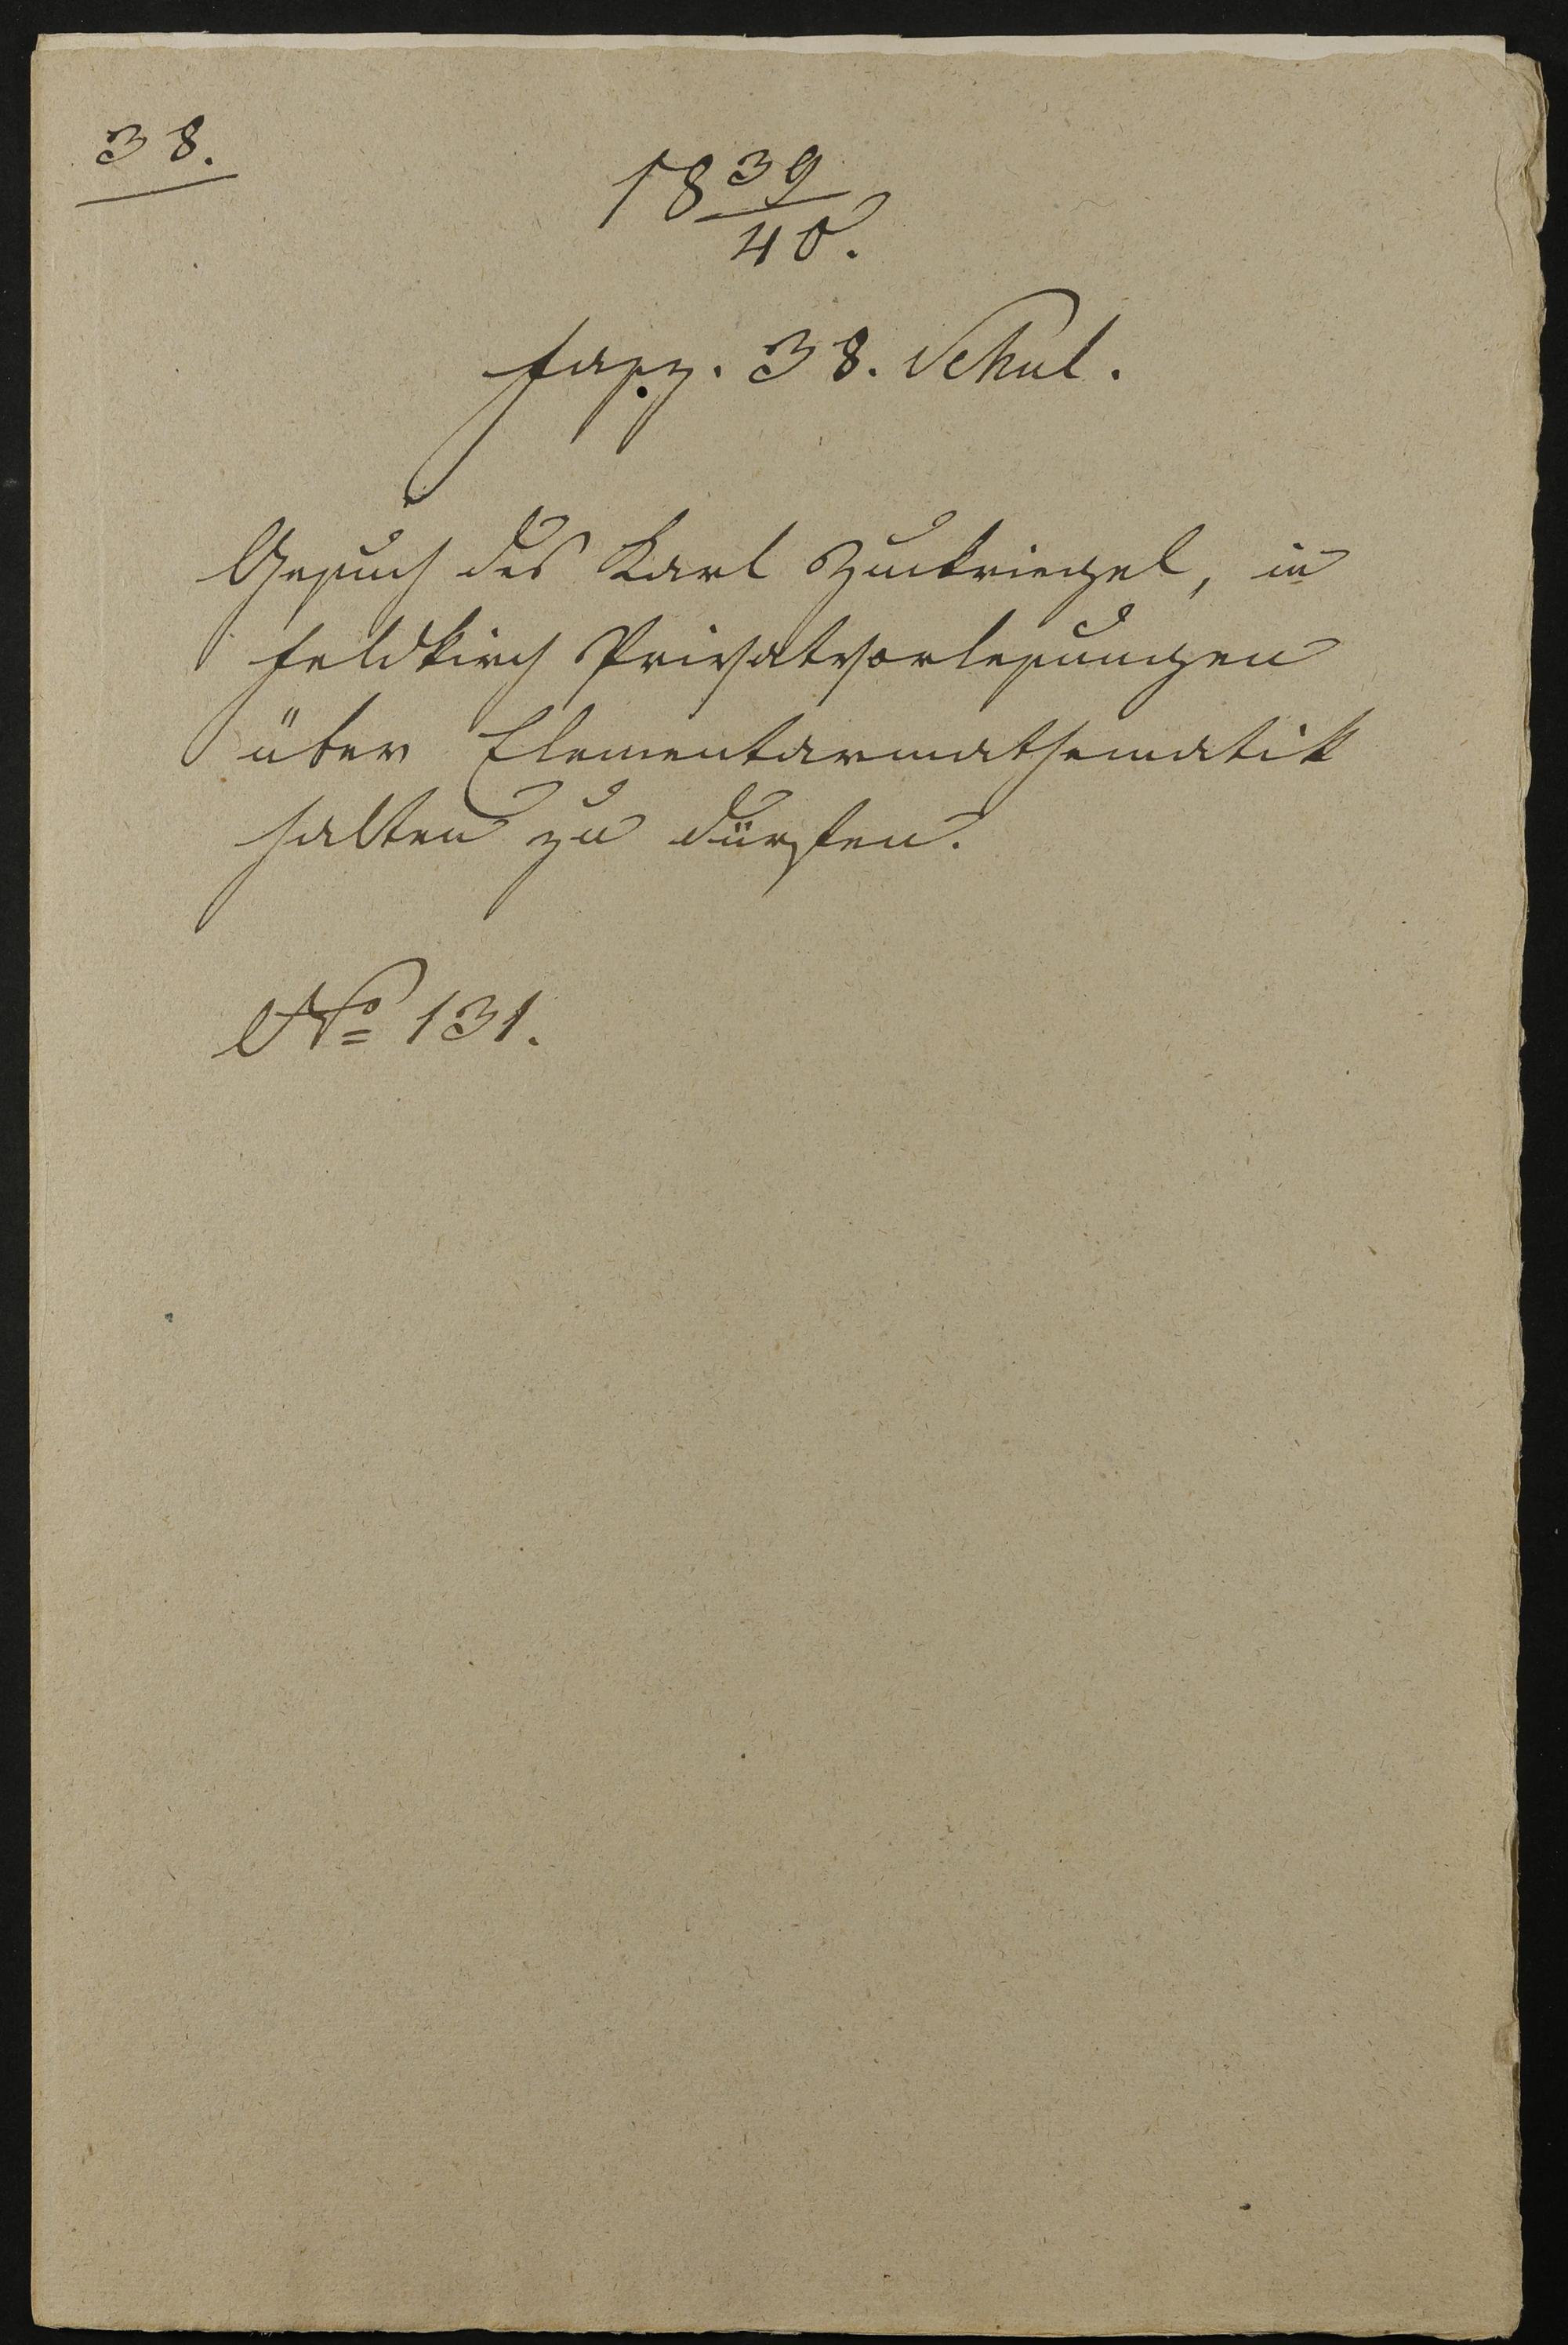 38.
18 39/40.
Fasz. 38. Schul.
Gesuch des Karl Zuckriegel, in
Feldkirch Privatvorlesungen
über Elementarmathematik
halten zu dürfen.
No 131.